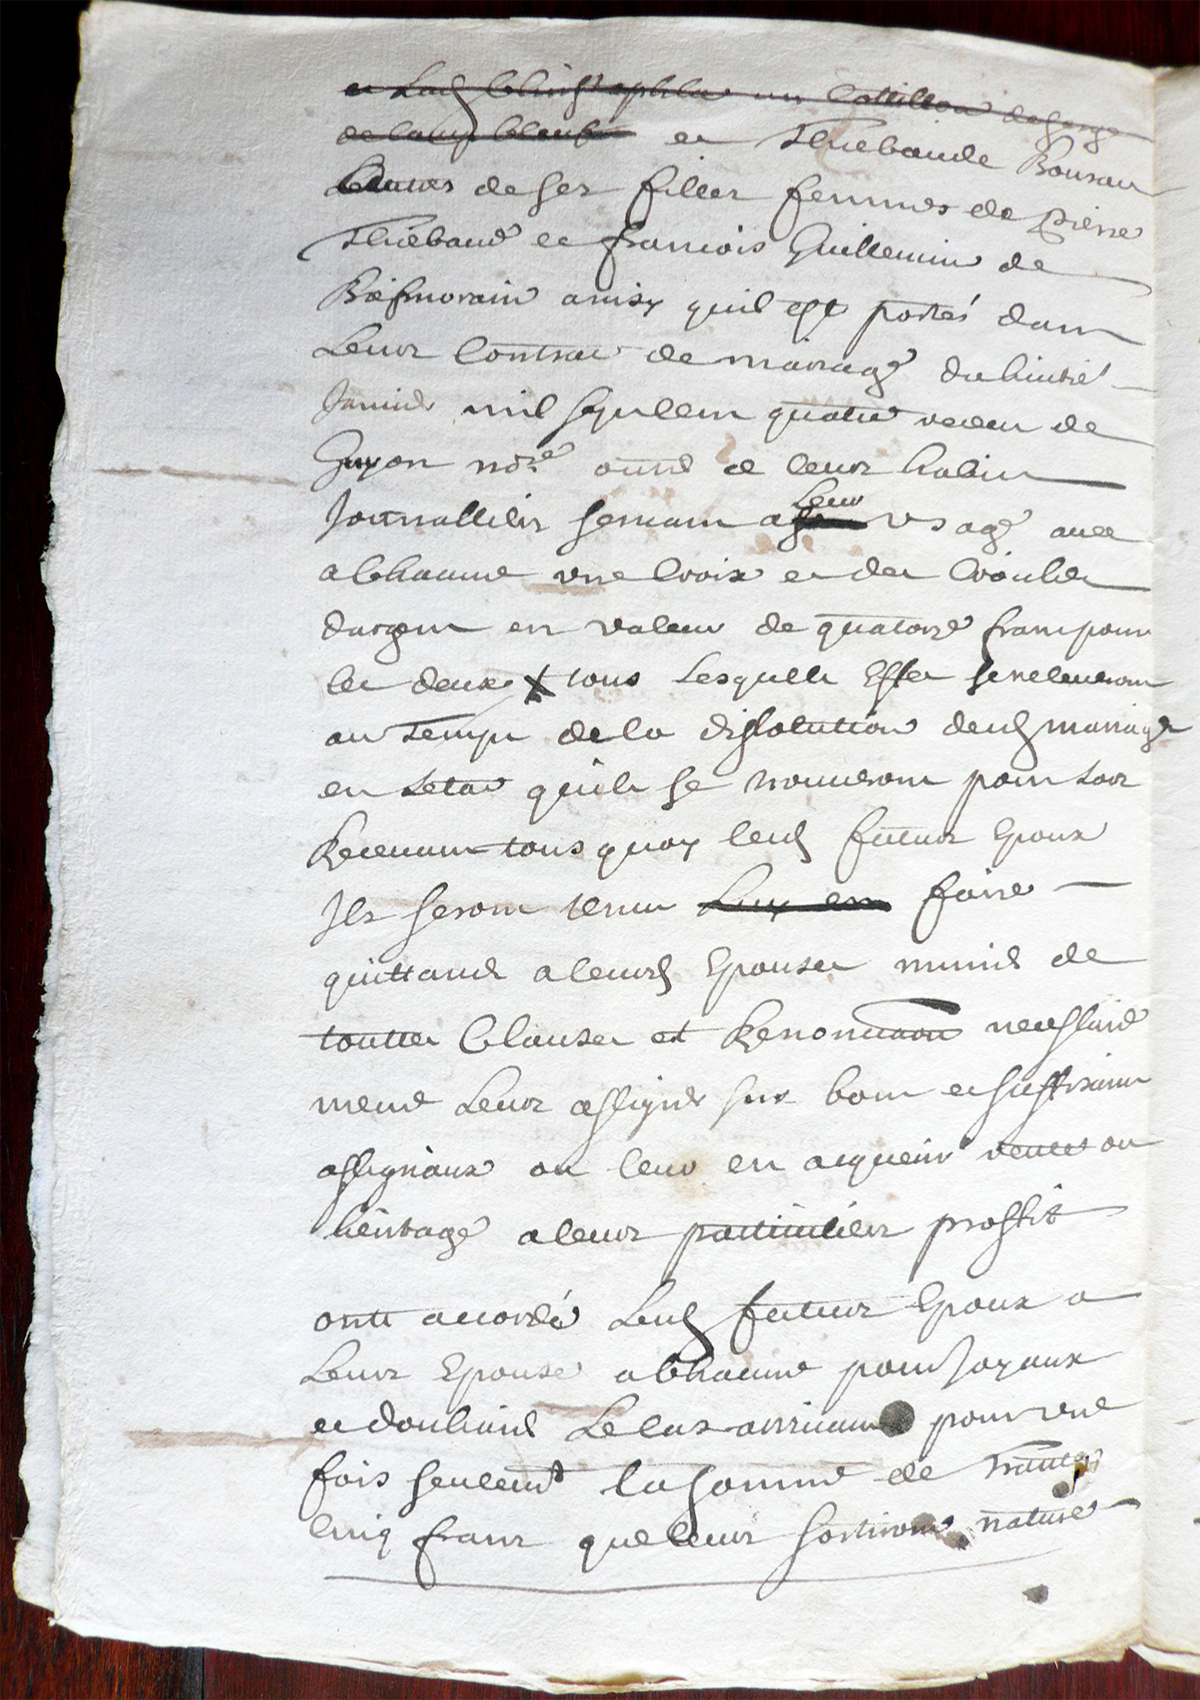 et Lad. un Cottillon de serge
de et Thiebaude Boursau
de ses filles femmes de pierre
Thiebaud et francois Guillemin de
ainsy quil est portés dans
Leurs Contrat de mariage du huitié
Janvié mil sept cent quatre receu de
Guyon nore outre et leurs habis
Journalliers servant a leur usage avec
a Chacune une Croix et des
dargent en valeur de quatorze frans pour
les deux tous Lesquels Effet se releveront
au Temps de la dissolution dud. mariage
en Letat quils se trouveront pour Lors
Recevant tous quoy lesd. futurs Epoux
Ils seront tenu Luy en faire
quittance a leursd. Epouses munie de
touttes Clauses et Renonciaon necessaire
mens Leurs assigner sur bons et suffisans
assignaux ou leur en acquerir ou
héritage a leurs particuliers proffit
onts accordé Lesd. futurs Epoux a
Leurs Epouse a Chacune pour Joyaux
et douhaire Le cas arrivant pour une
fois seulemt la somme de Trante
Cinq frans que leurs sortiront nature